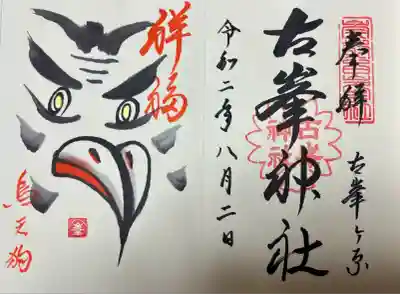 奉拝
古峯ヶ原
古峯神社
古峯神社
令和二年八月二日
祥福
烏天狗